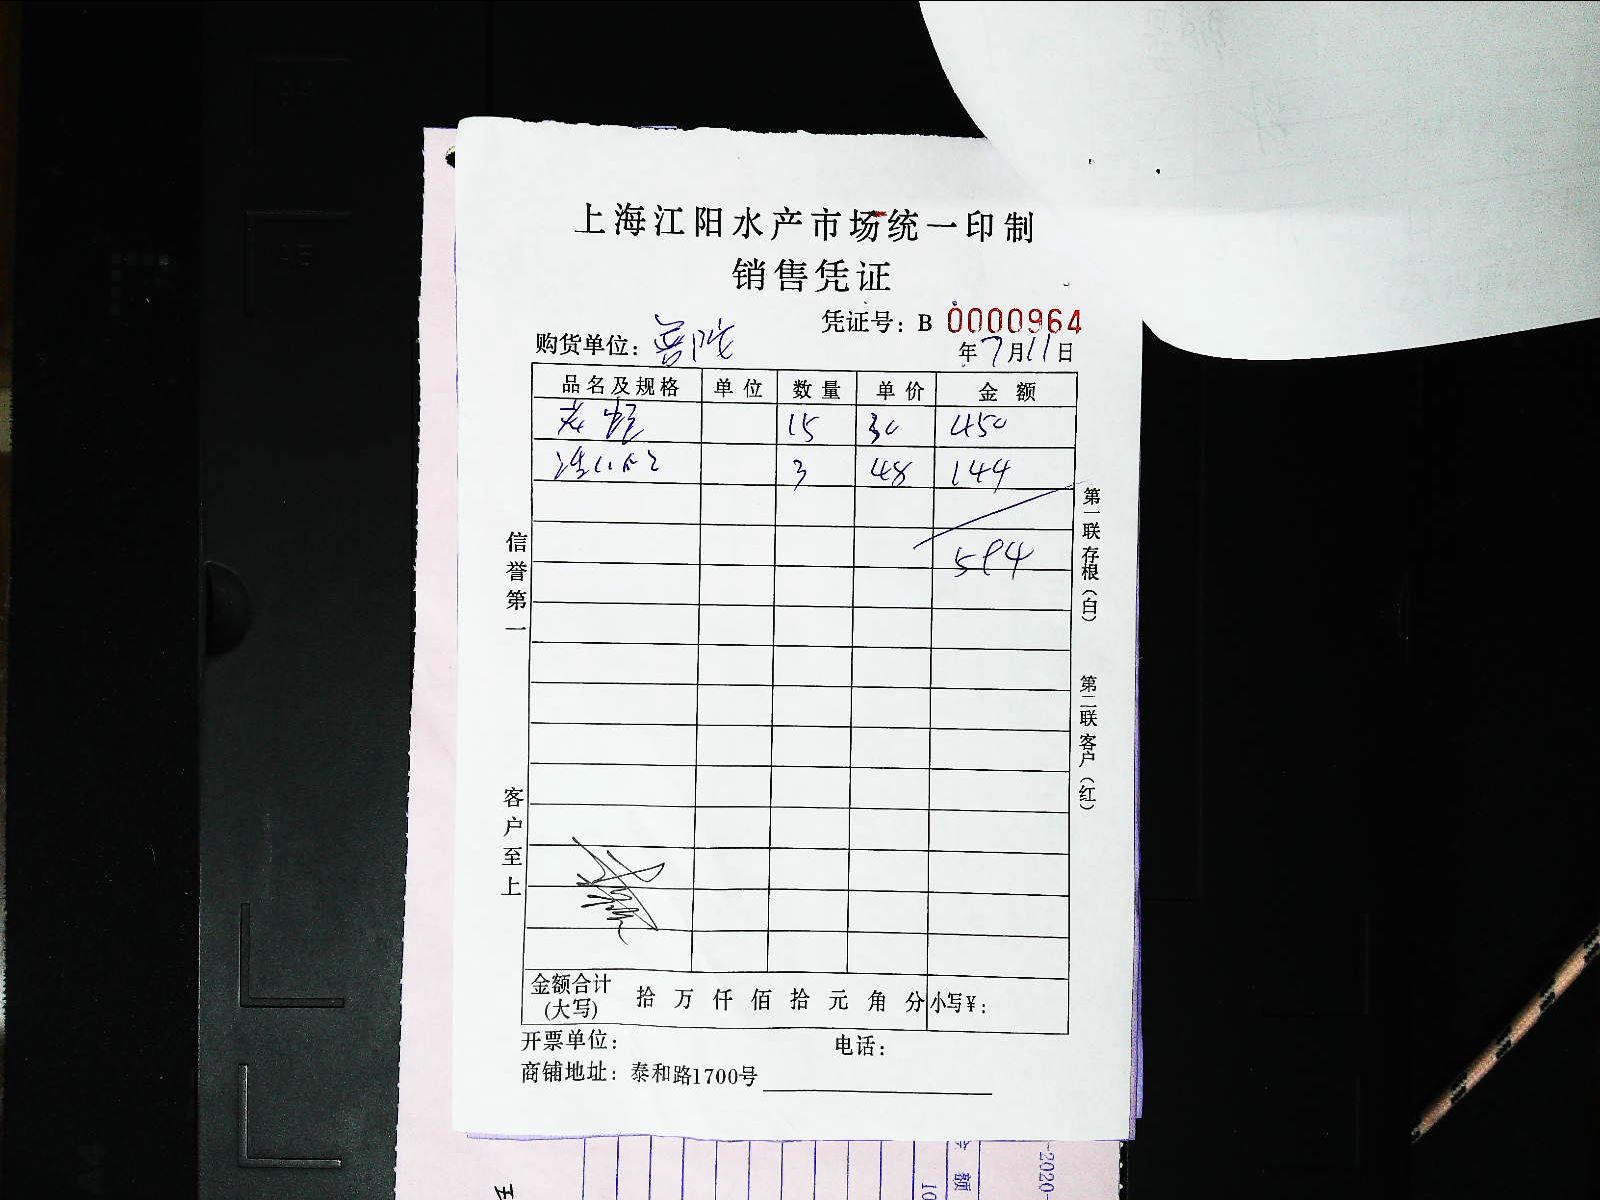 上海江阳水产市场统一印制
销售凭证
凭证号：B 0000964
购货单位：普陀
年7月11日
品名及规格 单位 数量 单价 金额
15 30 450
3 48 144
594
信誉第一
客户至上
第一联存根（白）
第二联客户（红）
金额合计（大写） 拾 万 仟 佰 拾 元 角 分 小写￥：
开票单位： 电话：
商铺地址：泰和路1700号
额
10
-2020-